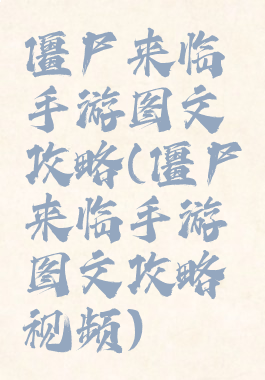 僵尸来临
手游图文
攻略(僵尸
来临手游
图文攻略
视频)